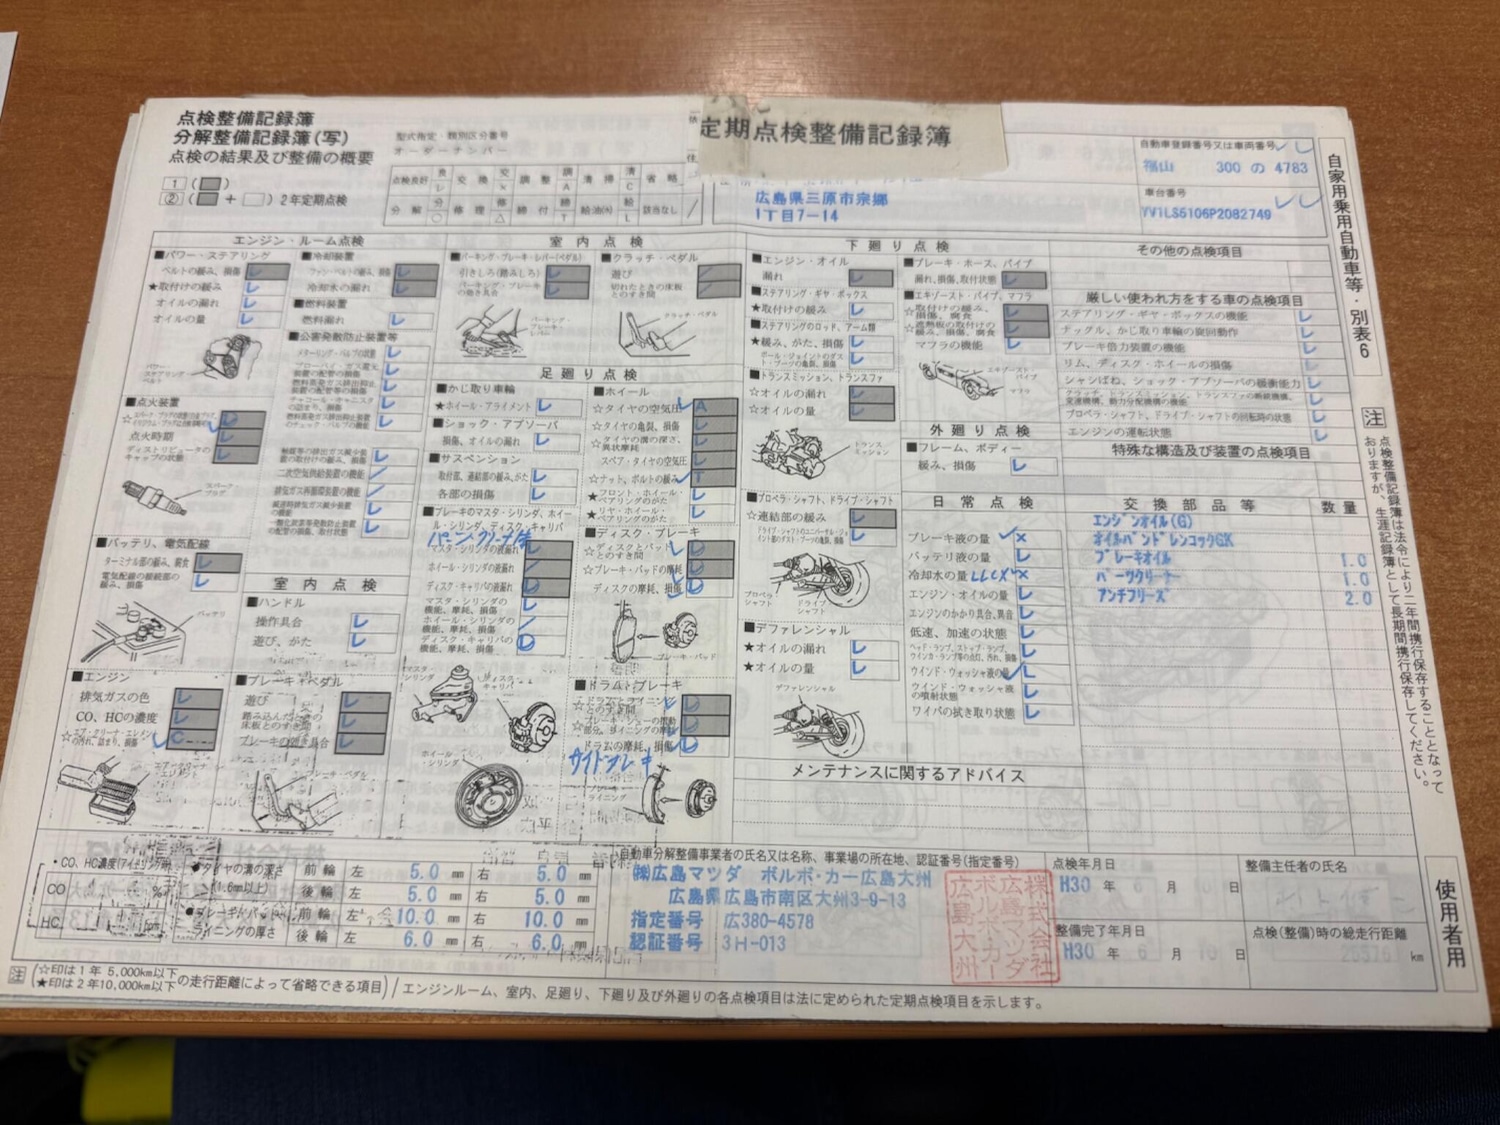 点検整備記録簿
分解整備記録簿(写)
点検の結果及び整備の概要
型式指定・類別区分番号
オーダーナンバー
定期点検整備記録簿
自動車登録番号又は車両番号
福山 300 の 4783
車台番号
YV1LS5106P2082749
広島県三原市宗郷
1丁目7-14
1 ( )
② ( + ) 2年定期点検
点検良好 レ 交換 × 調整 A 清掃 C 省略
分解 ○ 修理 △ 締付 T 給油(水) L 該当なし /
自家用乗用自動車等・別表6
エンジン・ルーム点検
■パワー・ステアリング
ベルトの緩み、損傷
★取付けの緩み
オイルの漏れ
オイルの量
パワー・ステアリング・ベルト
■冷却装置
ファン・ベルトの緩み、損傷
冷却水の漏れ
■燃料装置
燃料漏れ
■公害発散防止装置等
メターリング・バルブの状態
ブローバイ・ガス還元装置の配管の損傷
燃料蒸発ガス排出抑止装置の配管等の損傷
チャコール・キャニスタの詰まり、損傷
燃料蒸発ガス排出抑止装置のチェック・バルブの機能
触媒等の排出ガス減少装置の取付けの緩み、損傷
二次空気供給装置の機能
排気ガス再循環装置の機能
減速時排気ガス減少装置の機能
一酸化炭素等発散防止装置の配管の損傷、取付状態
■点火装置
点火時期
ディストリビュータのキャップの状態
スパーク・プラグ
■バッテリ、電気配線
ターミナル部の緩み、腐食
電気配線の接続部の緩み、損傷
バッテリ
■エンジン
排気ガスの色
CO、HCの濃度
☆エア・クリーナ・エレメントの汚れ、詰まり、損傷
室内点検
■ハンドル
操作具合
遊び、がた
■ブレーキ・ペダル
遊び
踏み込んだときの床板とのすき間
ブレーキの効き具合
ブレーキ・ペダル
室内点検
■パーキング・ブレーキ・レバー(ペダル)
引きしろ(踏みしろ)
パーキング・ブレーキの効き具合
■クラッチ・ペダル
遊び
切れたときの床板とのすき間
クラッチ・ペダル
足廻り点検
■かじ取り車輪
★ホイール・アライメント
■ショック・アブソーバ
損傷、オイルの漏れ
■サスペンション
取付部、連結部の緩み、がた
各部の損傷
■ブレーキのマスタ・シリンダ、ホイール・シリンダ、ディスク・キャリパ
マスタ・シリンダの液漏れ
ホイール・シリンダの液漏れ
ディスク・キャリパの液漏れ
マスタ・シリンダの機能、摩耗、損傷
ホイール・シリンダの機能、摩耗、損傷
ディスク・キャリパの機能、摩耗、損傷
マスタ・シリンダ
ディスク・キャリパ
ホイール・シリンダ
■ホイール
☆タイヤの空気圧 A
☆タイヤの亀裂、損傷
☆タイヤの溝の深さ、異状摩耗
スペア・タイヤの空気圧
☆ナット、ボルトの緩み T
★フロント・ホイール・ベアリングのがた
★リヤ・ホイール・ベアリングのがた
■ディスク・ブレーキ
☆ディスクとパッドとのすき間
☆ブレーキ・パッドの摩耗
ディスクの摩耗、損傷
ブレーキ・パッド
■ドラム・ブレーキ
ドラムの摩耗、損傷
サイドブレーキ
下廻り点検
■エンジン・オイル
漏れ
■ステアリング・ギヤ・ボックス
★取付けの緩み
■ステアリングのロッド、アーム類
★緩み、がた、損傷
ボール・ジョイントのダスト・ブーツの亀裂、損傷
■トランスミッション、トランスファ
☆オイルの漏れ
☆オイルの量
トランスミッション
■プロペラ・シャフト、ドライブ・シャフト
☆連結部の緩み
ドライブ・シャフトのユニバーサル・ジョイント部のダスト・ブーツの亀裂、損傷
プロペラ・シャフト
ドライブ・シャフト
■デファレンシャル
★オイルの漏れ
★オイルの量
デファレンシャル
■ブレーキ・ホース、パイプ
漏れ、損傷、取付状態
■エキゾースト・パイプ、マフラ
☆取付けの緩み、損傷、腐食
☆遮熱板の取付けの緩み、損傷、腐食
マフラの機能
エキゾースト・パイプ
マフラ
外廻り点検
■フレーム、ボディー
緩み、損傷
日常点検
ブレーキ液の量 ×
バッテリ液の量
冷却水の量 LLC ×
エンジン・オイルの量
エンジンのかかり具合、異音
低速、加速の状態
ヘッド・ランプ、ストップ・ランプ、ウインカ・ランプ等の点灯、汚れ、損傷
ウインド・ウォッシャ液の量 L
ウインド・ウォッシャ液の噴射状態
ワイパの拭き取り状態
その他の点検項目
厳しい使われ方をする車の点検項目
ステアリング・ギヤ・ボックスの機能
ナックル、かじ取り車輪の旋回動作
ブレーキ倍力装置の機能
リム、ディスク・ホイールの損傷
シャシばね、ショック・アブソーバの緩衝能力
クラッチ、トランスミッション、トランスファの断続機構、変速機構、動力分配機構の機能
プロペラ・シャフト、ドライブ・シャフトの回転時の状態
エンジンの運転状態
特殊な構造及び装置の点検項目
交換部品等 数量
エンジンオイル(G)
オイルパンドレンコックGK
ブレーキオイル 1.0
パーツクリーナー 1.0
アンチフリーズ 2.0
メンテナンスに関するアドバイス
注 点検整備記録簿は法令により二年間携行保存することとなっておりますが、生涯記録簿として長期間携行保存してください。
・CO、HC濃度(アイドリング時)
CO %
HC
●タイヤの溝の深さ(1.6mm以上)
前輪 左 5.0 mm 右 5.0 mm
後輪 左 5.0 mm 右 5.0 mm
●ブレーキ・パッド、ライニングの厚さ
前輪 左 10.0 mm 右 10.0 mm
後輪 左 6.0 mm 右 6.0 mm
自動車分解整備事業者の氏名又は名称、事業場の所在地、認証番号(指定番号)
㈱広島マツダ ボルボ・カー広島大州
広島県広島市南区大州3-9-13
指定番号 広380-4578
認証番号 3H-013
株式会社広島マツダボルボ・カー広島大州
点検年月日
H30 年 6 月 10 日
整備完了年月日
H30 年 6 月 10 日
整備主任者の氏名
点検(整備)時の総走行距離
km
使用者用
注 (☆印は1年 5,000km以下 ★印は2年10,000km以下 の走行距離によって省略できる項目) / エンジンルーム、室内、足廻り、下廻り及び外廻りの各点検項目は法に定められた定期点検項目を示します。